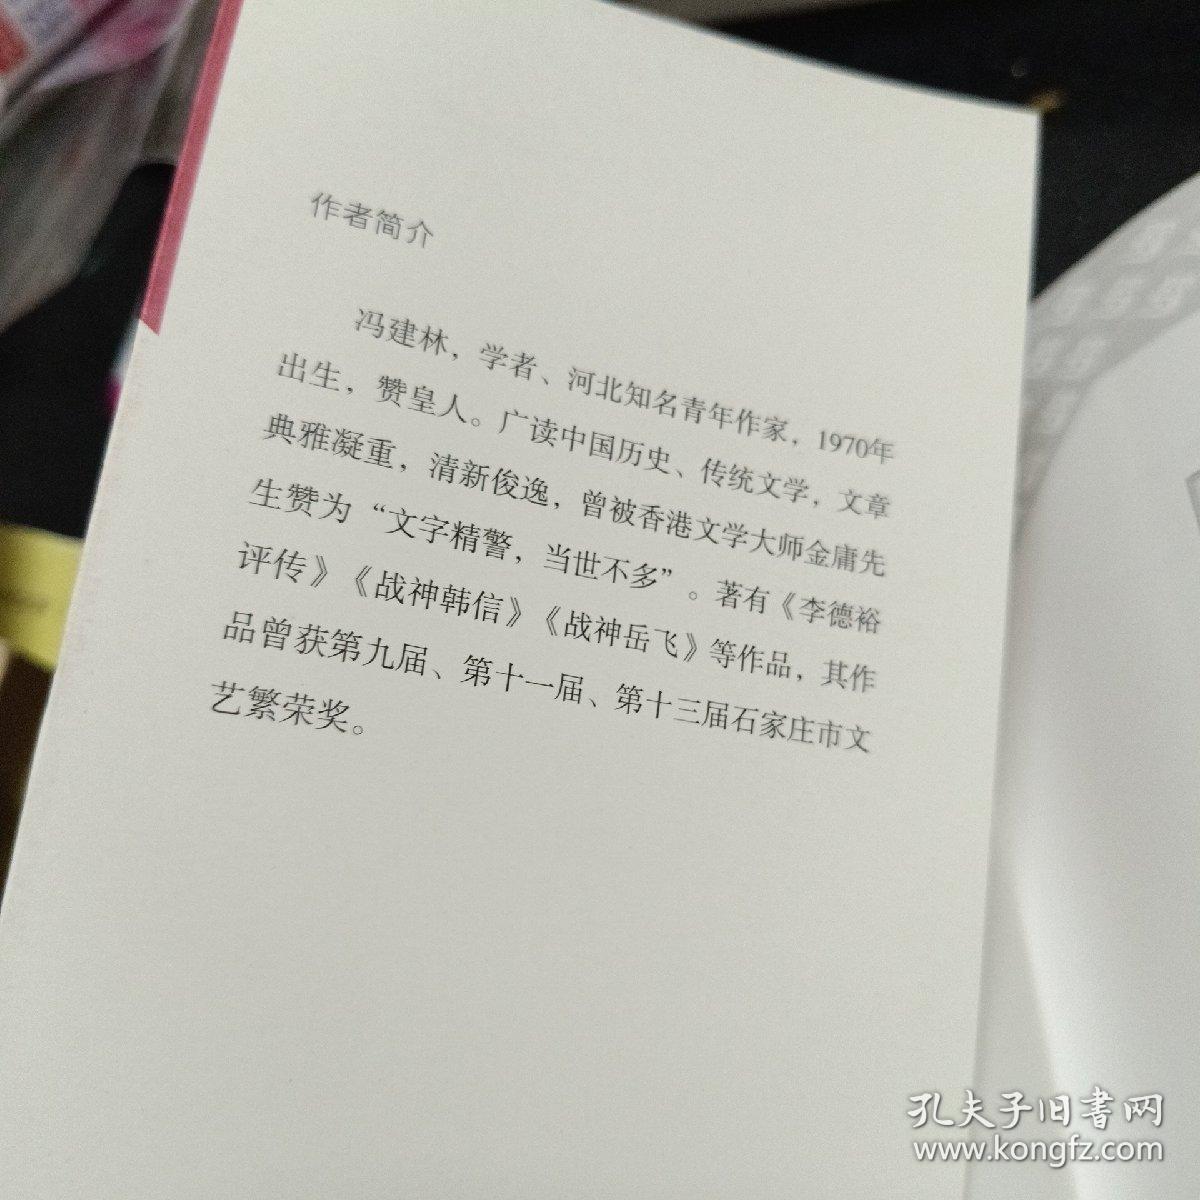 作者简介
冯建林，学者、河北知名青年作家，1970年
出生，赞皇人。广读中国历史、传统文学，文章
典雅凝重，清新俊逸，曾被香港文学大师金庸先
生赞为“文字精警，当世不多”。著有《李德裕
评传》《战神韩信》《战神岳飞》等作品，其作
品曾获第九届、第十一届、第十三届石家庄市文
艺繁荣奖。
孔夫子旧书网
www.kongfz.com